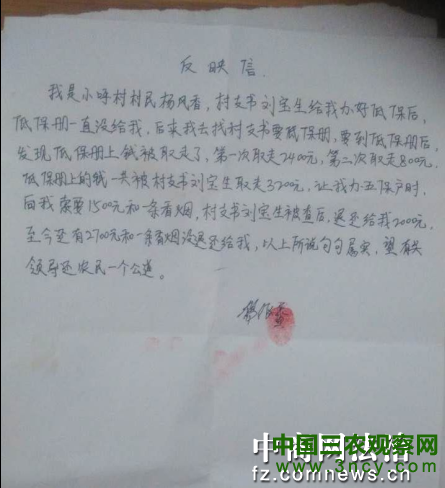 反映信.
我是小呼村村民杨风香，村支书刘宝生给我办好低保后，
低保册一直没给我，后来我去找村支书要低保册，要到低保册后，
发现低保册上钱被取走了，第一次取走2400元，第二次取走800元，
低保册上的钱一共被村支书刘宝生取走3200元，让我办五保户时，
向我索要1500元和一条香烟，村支书刘宝生被查后，退还给我2000元，
至今还有2700元和一条香烟没退还给我，以上所说句句属实，望有关
领导还农民一个公道。
中商网法治
中国三农观察网
fz.comnews.cn
www.3ncy.com